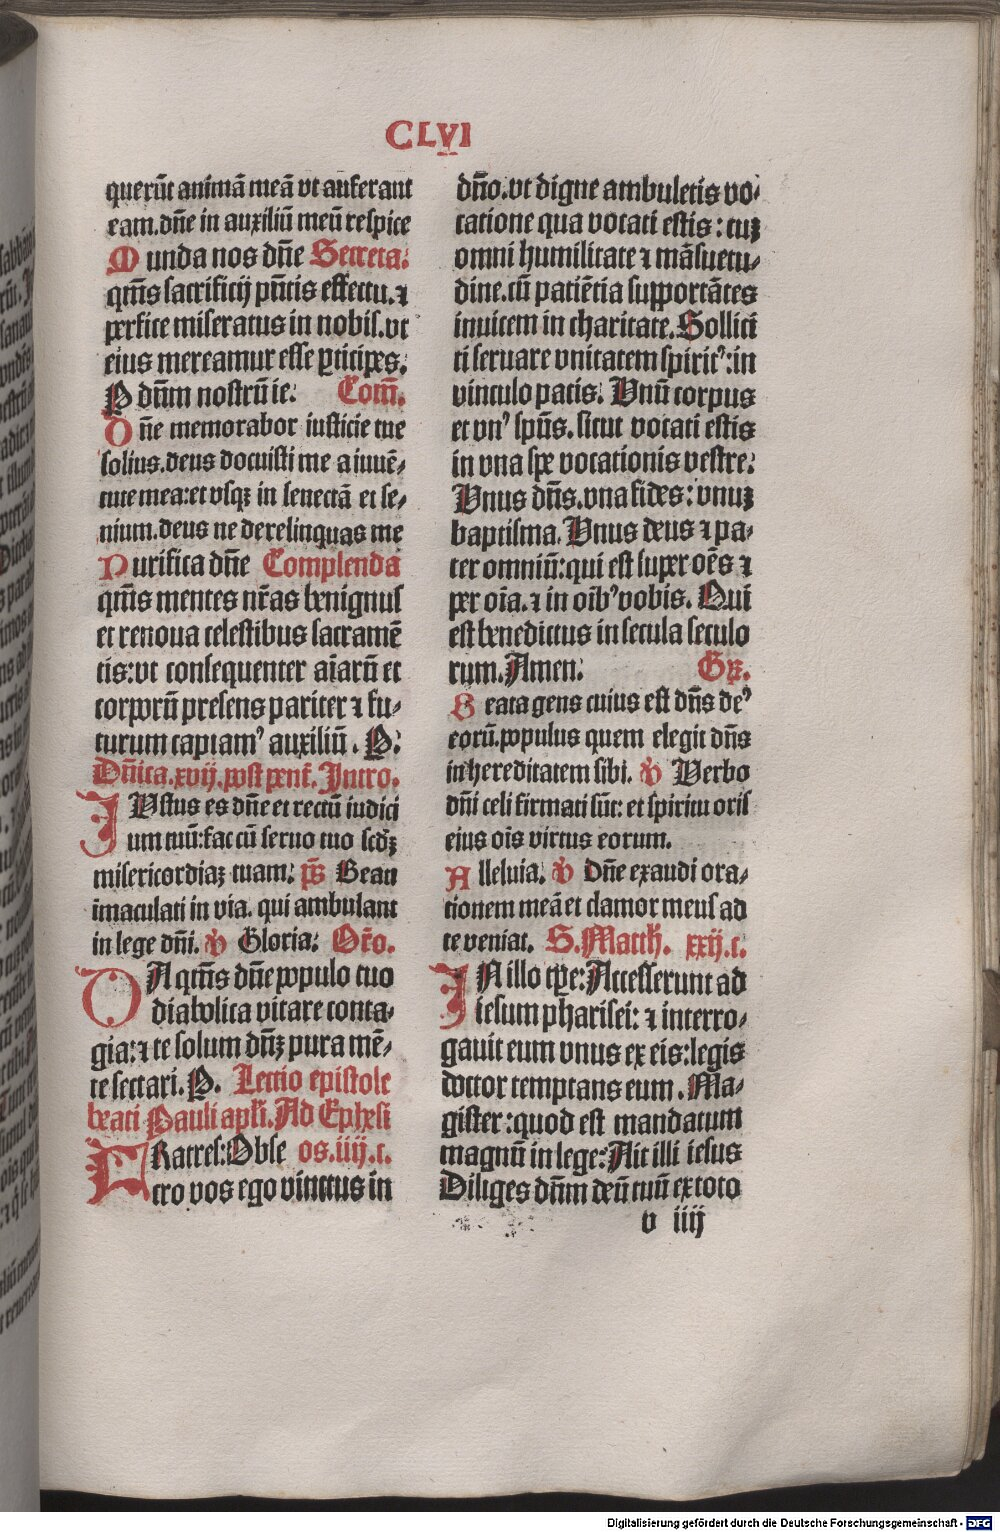 CLVI
querūt animā meā vt auferant
eam.dn̄e in auxiliū meū respice
Munda nos dn̄e Secreta:
qm̄s sacrificij pn̄tis effectu.⁊
perfice miseratus in nobis.vt
eius mereamur esse ꝑticipes:
P dūm nostrū ie: Com̄.
Dn̄e memorabor iusticie tue
solius.deus docuisti me a iuuē⸗
tute mea:et vsqꝫ in senectā et se⸗
nium.deus ne derelinquas me
Purifica dn̄e Complenda
qm̄s mentes nr̄as benignus
et renoua celestibus sacramē
tis:vt consequenter aīarū et
corporū presens pariter ⁊ fu⸗
turum capiamꝰ auxiliū. P:
Dn̄ica.xvij.post pent̄. Intro.
IVstus es dn̄e et rectū iudici
um tuū:fac cū seruo tuo scd̄ꝫ
misericordiaꝫ tuam: ps̄ Beati
īmaculati in via. qui ambulant
in lege dn̄i. ꝟ Gloria: Or̄o.
DA qm̄s dn̄e populo tuo
diabolica vitare conta⸗
gia:⁊ te solum dn̄ꝫ pura mē⸗
te sectari. P. Lectio epistole
beati Pauli apl̄i. Ad Ephesi
FRatres:Obse os.iiij.c.
cro vos ego vinctus in
dn̄o.vt digne ambuletis vo⸗
catione qua vocati estis: cuꝫ
omni humilitate ⁊ māsuetu⸗
dine.cū patiētia supportātes
inuicem in charitate. Sollici
ti seruare vnitatem spiritꝰ:in
vinculo pacis. Vnū corpus
et vnꝰ spūs.sicut vocati estis
in vna spe vocationis vestre:
Vnus dn̄s.vna fides: vnuꝫ
baptisma. Vnus deus ⁊ pa⸗
ter omniū:qui est super oēs ⁊
per oīa.⁊ in oībꝰ vobis. Qui
est benedictus in secula seculo
rum. Amen: Gr̄.
Beata gens cuius est dn̄s deꝰ
eorū.populus quem elegit dn̄s
in hereditatem sibi. ꝟ Verbo
dn̄i celi firmati sūt: et spiritu oris
eius oīs virtus eorum.
Alleluia: ꝟ Dn̄e exaudi ora⸗
tionem meā et clamor meus ad
te veniat. S. Matth. xxij.c.
IN illo tꝑe: Accesserunt ad
iesum pharisei: ⁊ interro⸗
gauit eum vnus ex eis:legis
doctor temptans eum. Ma⸗
gister:quod est mandatum
magnū in lege: Ait illi iesus
Diliges dn̄m deū tuū ex toto
v iiij
Digitalisierung gefördert durch die Deutsche Forschungsgemeinschaft - DFG